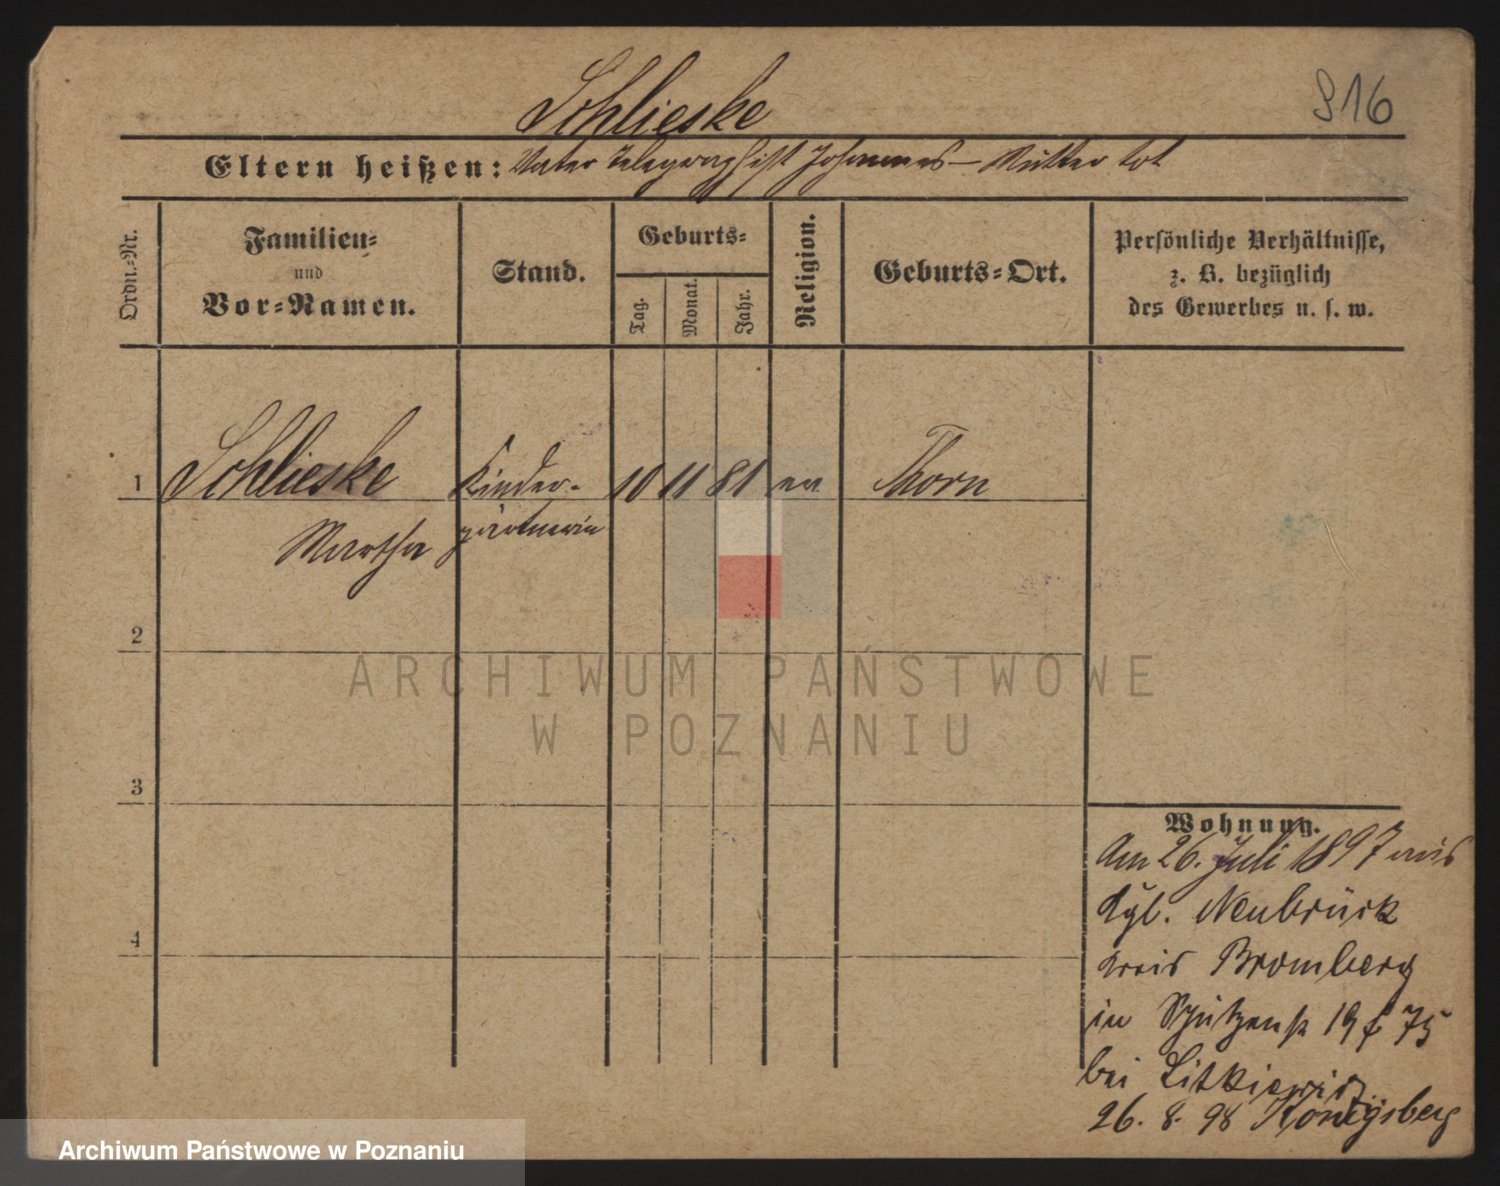 Schlieske
916
Eltern heißen: Vater Telegraphist Johannes – Mutter tot
Ordn.-Nr.
Familien-
und
Vor-Namen.
Stand.
Geburts-
Tag.
Monat.
Jahr.
Religion.
Geburts-Ort.
Persönliche Verhältnisse,
z. B. bezüglich
des Gewerbes u. s. w.
1 Schlieske Kinder- 10 11 81 ev Thorn
Martha gärtnerin
2
ARCHIWUM PAŃSTWOWE
W POZNANIU
3
Wohnung.
Am 26. Juli 1897 aus
Kgl. Neubrück
4
Kreis Bromberg
in Schützenstr 19 f 75
bei Litkiewicz
26. 8. 98 Königsberg
Archiwum Państwowe w Poznaniu